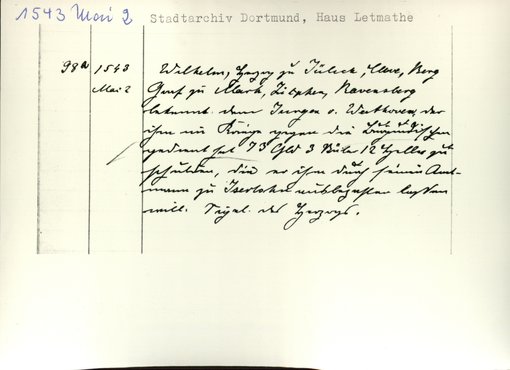 1543 Mai 2 Stadtarchiv Dortmund, Haus Letmathe
98a 1543 Wilhelm, Herzog zu Jülich, Cleve, Berg
Mai 2 Graf zu Mark, Zütphen, Ravensberg
bekennt dem Juergen v. Westhoven, der
ihm im Kriege gegen die Burgundischen
gedient hat 73 Gld 3 12 Heller zu
schulden, die er ihm durch seinen Amt-
mann zu Iserlohn ausbezahlen lassen
will. Siegel des Herzogs.